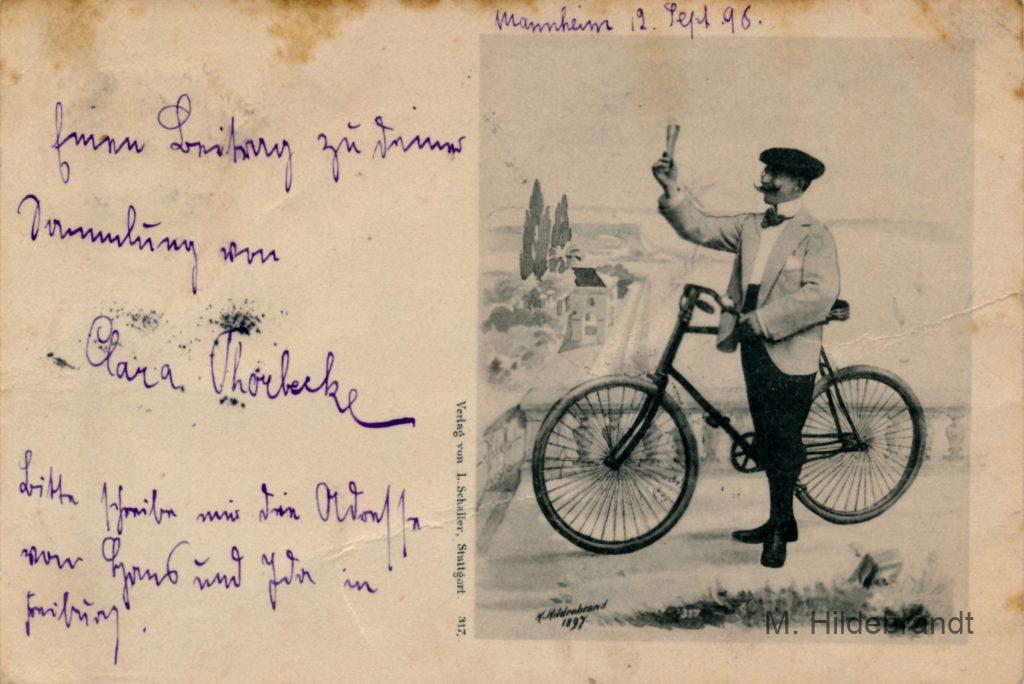 Mannheim 12. Sept 98.
Einen Beitrag zu deiner
Sammlung von
Clara Thorbecke
Bitte schreibe mir die Adresse
von Hans und Ida in
Freiburg.
Verlag von L. Schaller, Stuttgart 317.
H. Hildenbrand
1897.
M. Hildebrandt